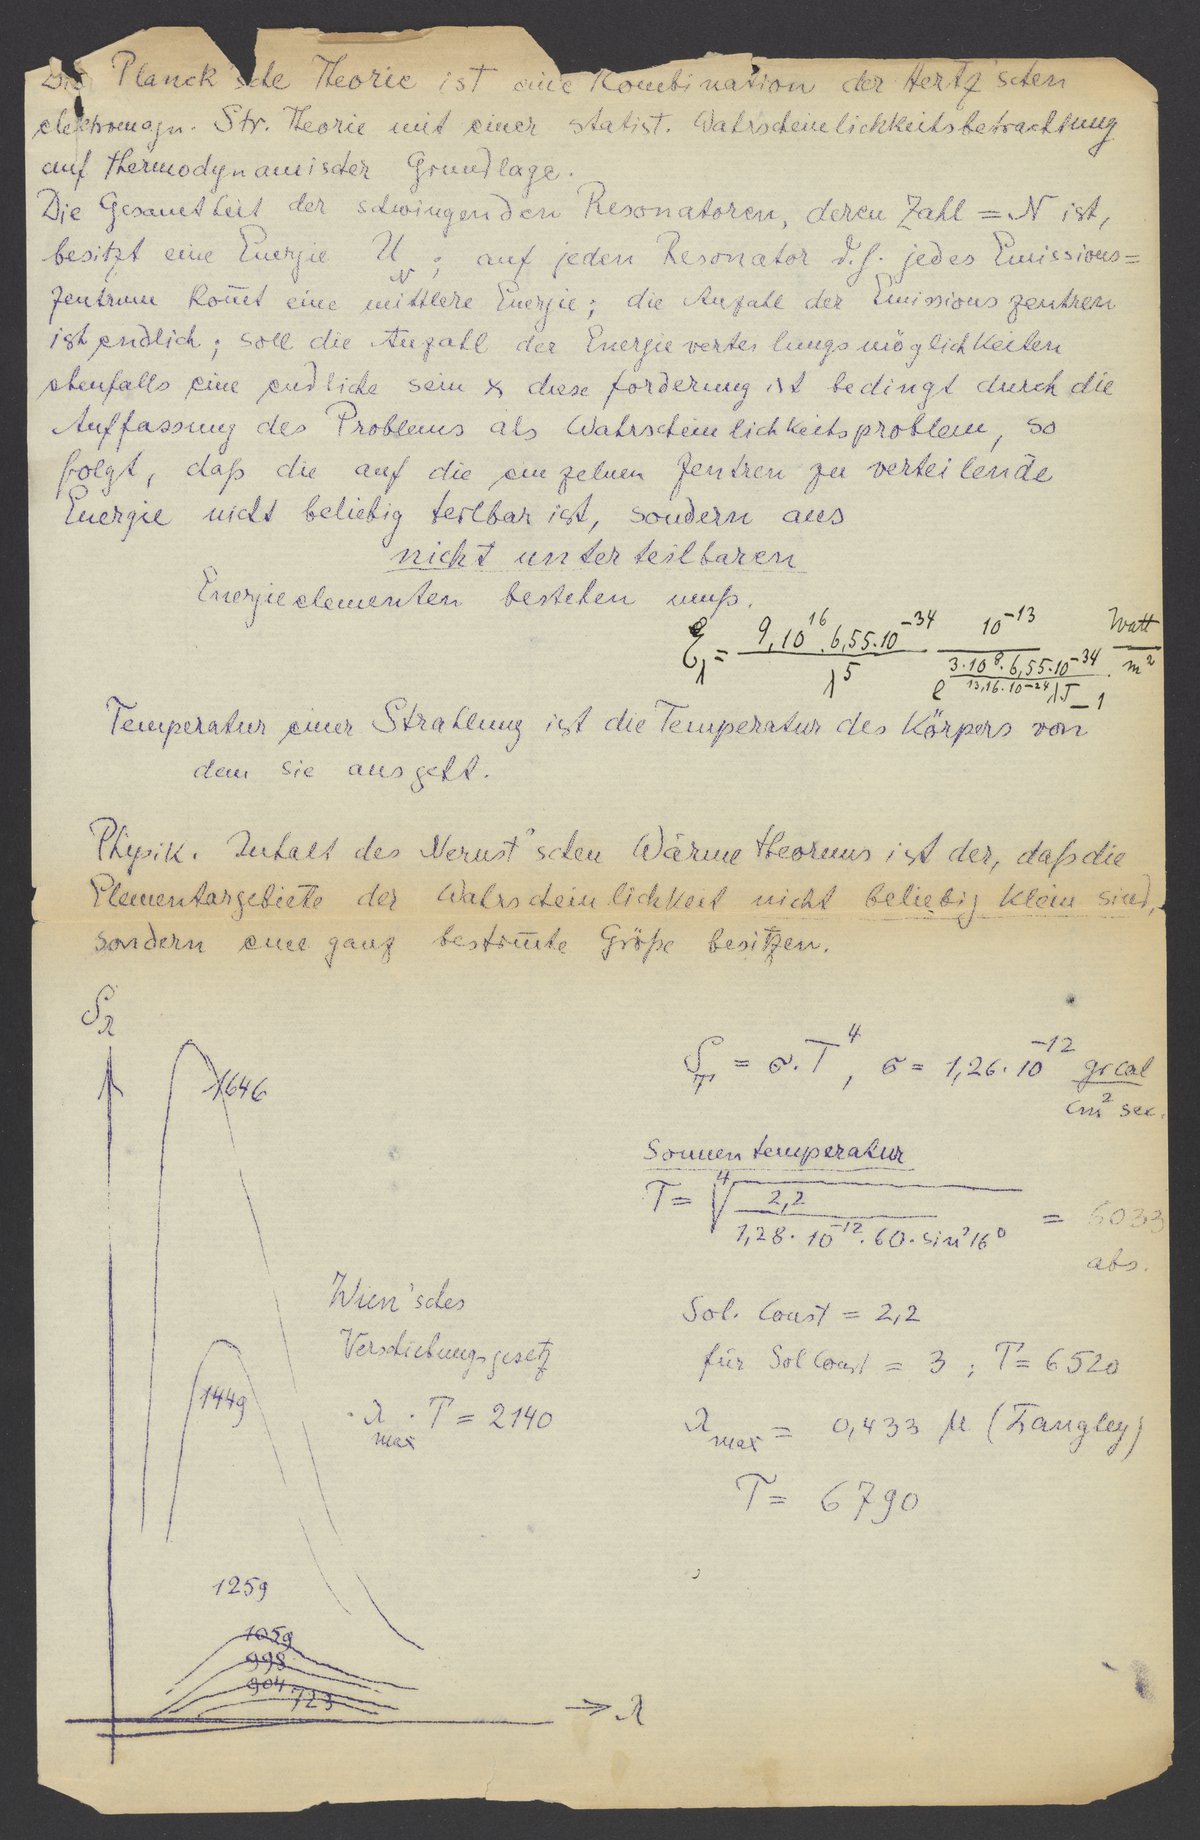 Die Planck'sche Theorie ist eine Kombination der Hertz'schen
elektromagn. Str. Theorie mit einer statist. Wahrscheinlichkeitsbetrachtung
auf thermodynamischer Grundlage.
Die Gesamtheit der schwingenden Resonatoren, deren Zahl = N ist,
besitzt eine Energie U_N ; auf jeden Resonator d.h. jedes Emissions=
zentrum kom̅t eine mittlere Energie; die Anzahl der Emissionszentren
ist endlich; soll die Anzahl der Energieverteilungsmöglichkeiten
ebenfalls eine endliche sein & diese Forderung ist bedingt durch die
Auffassung des Problems als Wahrscheinlichkeitsproblem, so
folgt, daß die auf die einzelnen Zentren zu verteilende
Energie nicht beliebig teilbar ist, sondern aus
nicht unterteilbaren
Energieelementen bestehen muß.
E_λ = 9,10^16 . 6,55·10^-34 / λ^5 10^-13 / e^(3·10^8·6,55·10^-34 / 13,16·10^-24 λT) -1 . Watt / m^2
Temperatur einer Strahlung ist die Temperatur des Körpers von
dem sie ausgeht.
Physik. Inhalt des Nernst'schen Wärmetheorems ist der, daß die
Elementargebiete der Wahrscheinlichkeit nicht beliebig klein sind,
sondern eine ganz bestim̅te Größe besitzen.
S_λ
1646
S_T = σ·T^4, σ = 1,26·10^-12 gr cal / cm^2 sec.
Sonnentemperatur
T = ∜ 2,2 / 1,28·10^-12·60·sin^2 16^0 = 6033
abs.
Wien'sches
Verschiebungsgesetz
· λ_max · T = 2140
Sol. Const = 2,2
für Sol Const = 3 ; T = 6520
1449
λ_max = 0,433 μ (Langley)
T = 6790
1259
1059
998
904
723
→ λ